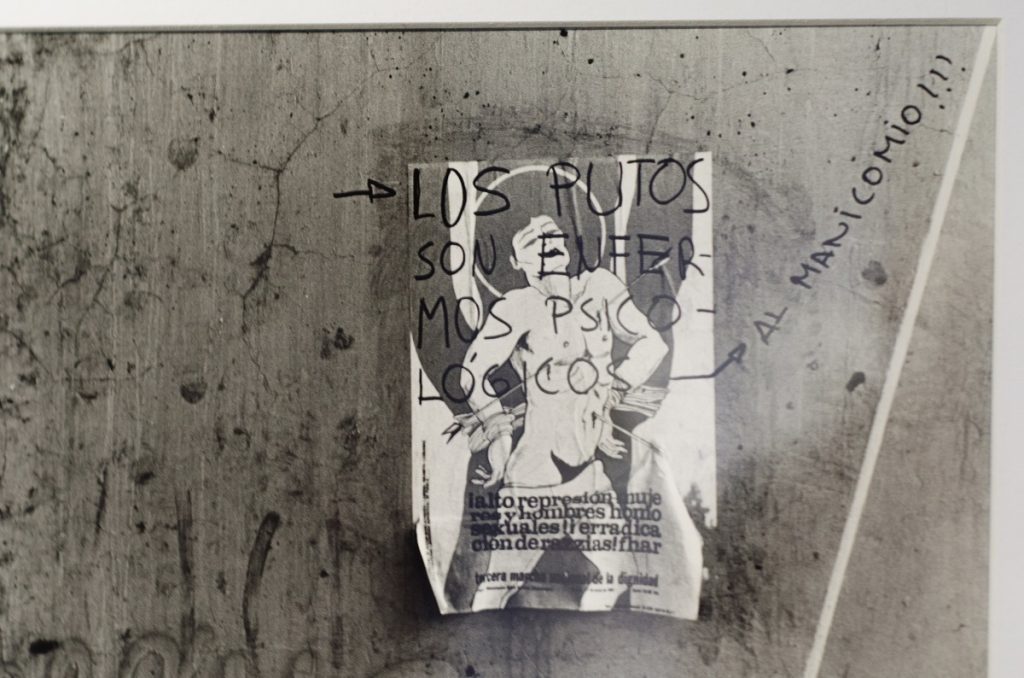 LOS PUTOS
SON ENFER-
MOS PSICO-
LOGICOS
AL MANICOMIO!!!
¡alto represión muje
res y hombres homo
sexuales!¡erradica
ción de razzias!fhar
tercera marcha nacional de la dignidad